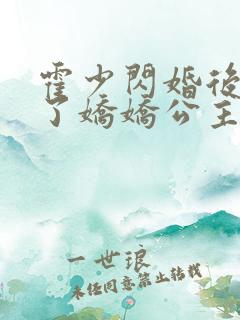 霍少閃婚後
了嬌嬌公主
一世琅
未经同意禁止转载